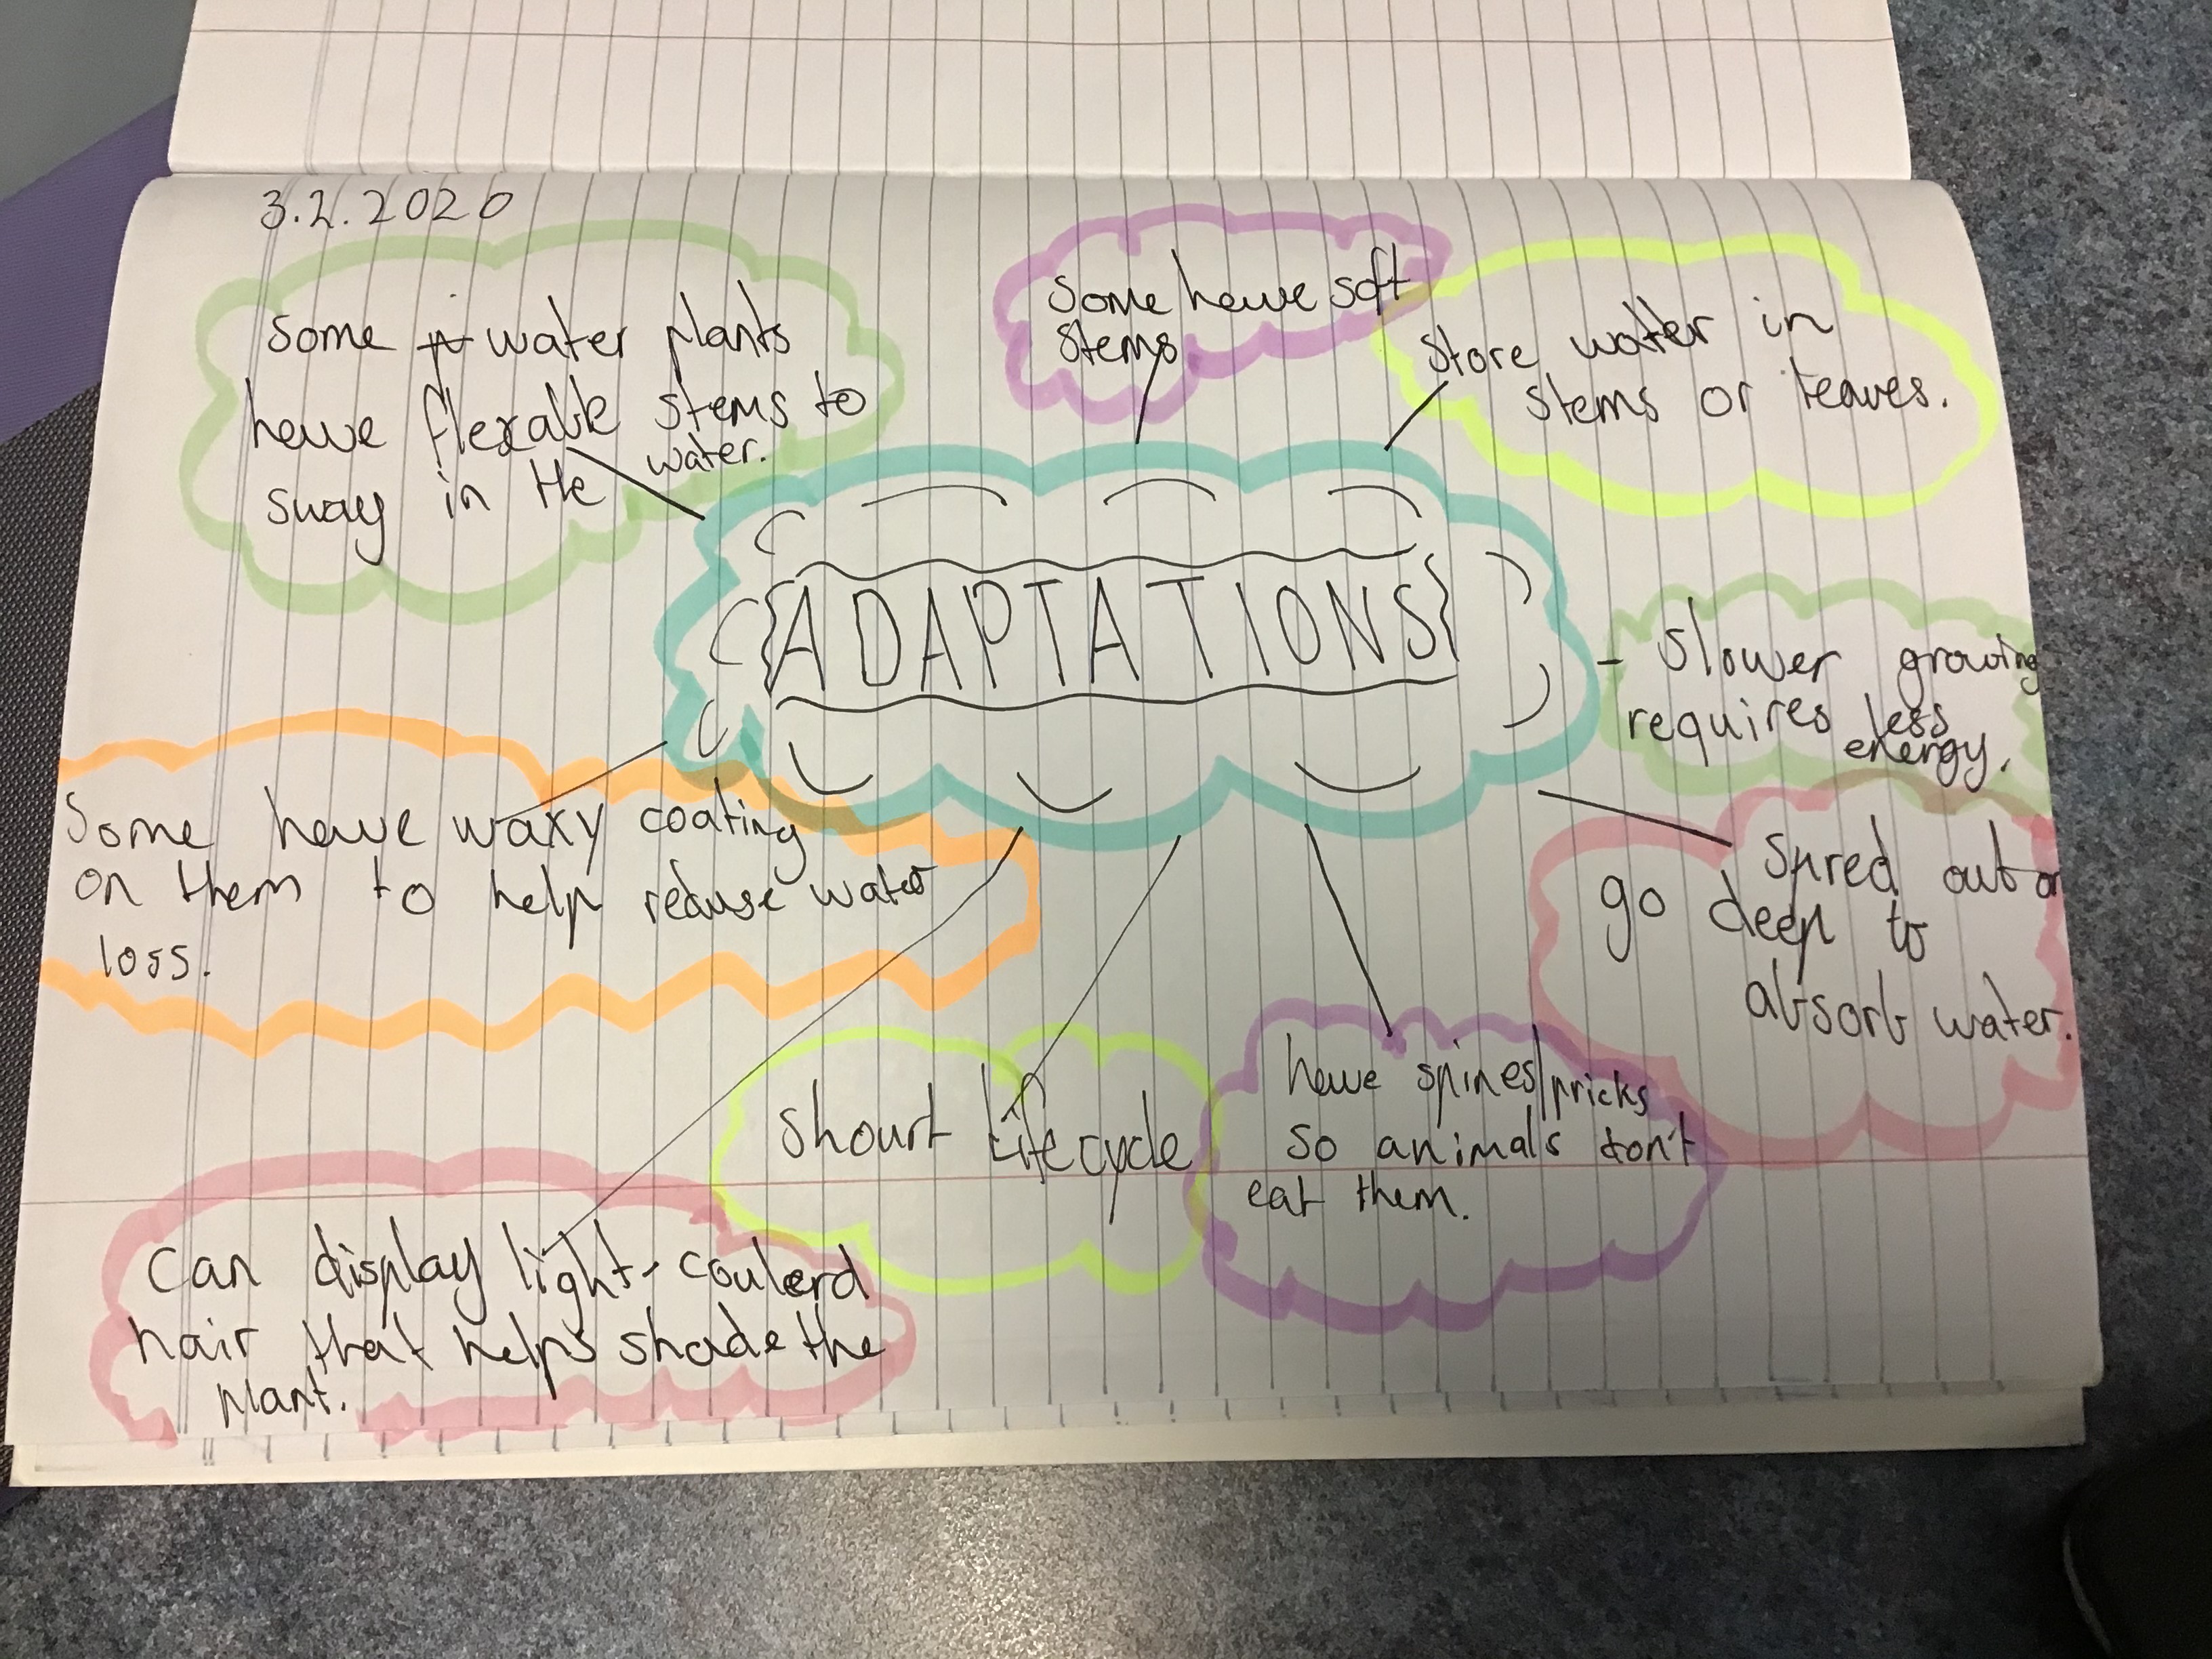 3.2.2020
some water plants
have flexable stems to
sway in the water.
Some have soft
stems
Store water in
stems or leaves.
ADAPTATIONS
- Slower growing
requires less
energy.
Some have waxy coating
on them to help reduse water
loss.
Spred out or
go deep to
absorb water.
have spines/pricks
so animals don't
eat them.
shourt life cycle
Can display light-coulerd
hair that helps shade the
plant.